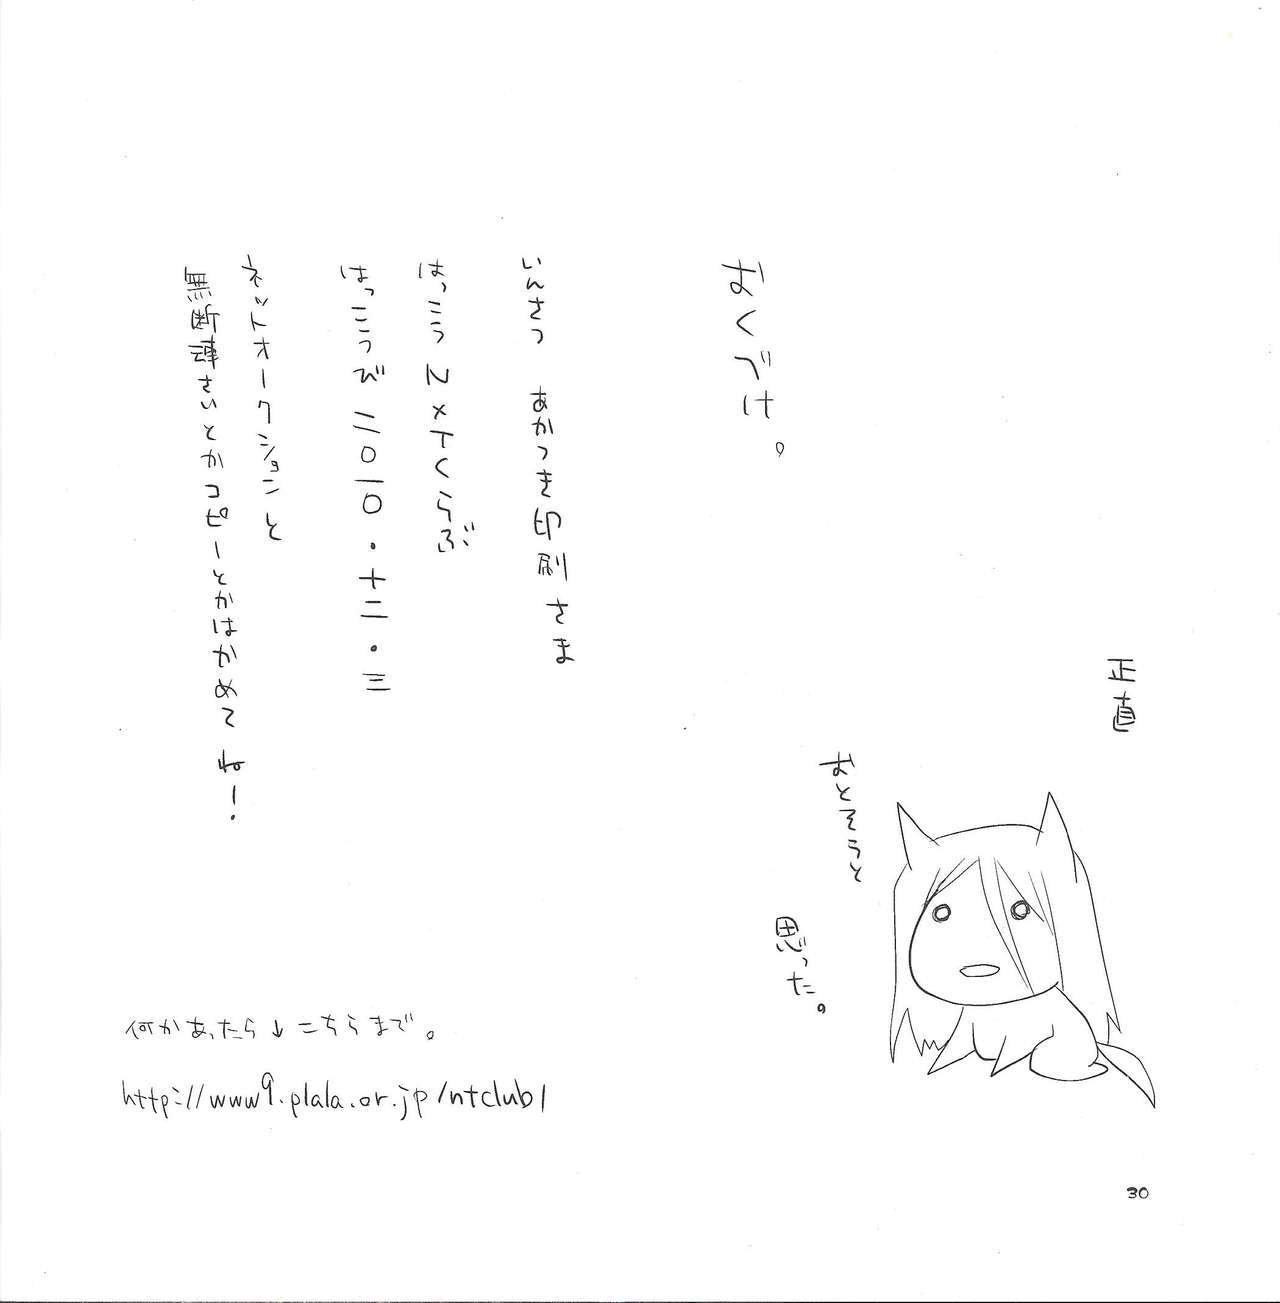 正直
おとそうと
思った。
おくづけ。
いんさつ　あかつき印刷さま
はっこう N×Tくらぶ
はっこうび 二〇一〇・十二・三
ネットオークションと
無断転さいとかコピーとかはかめてね！
何かあったら↓こちらまで。
http://www9.plala.or.jp/ntclub/
30